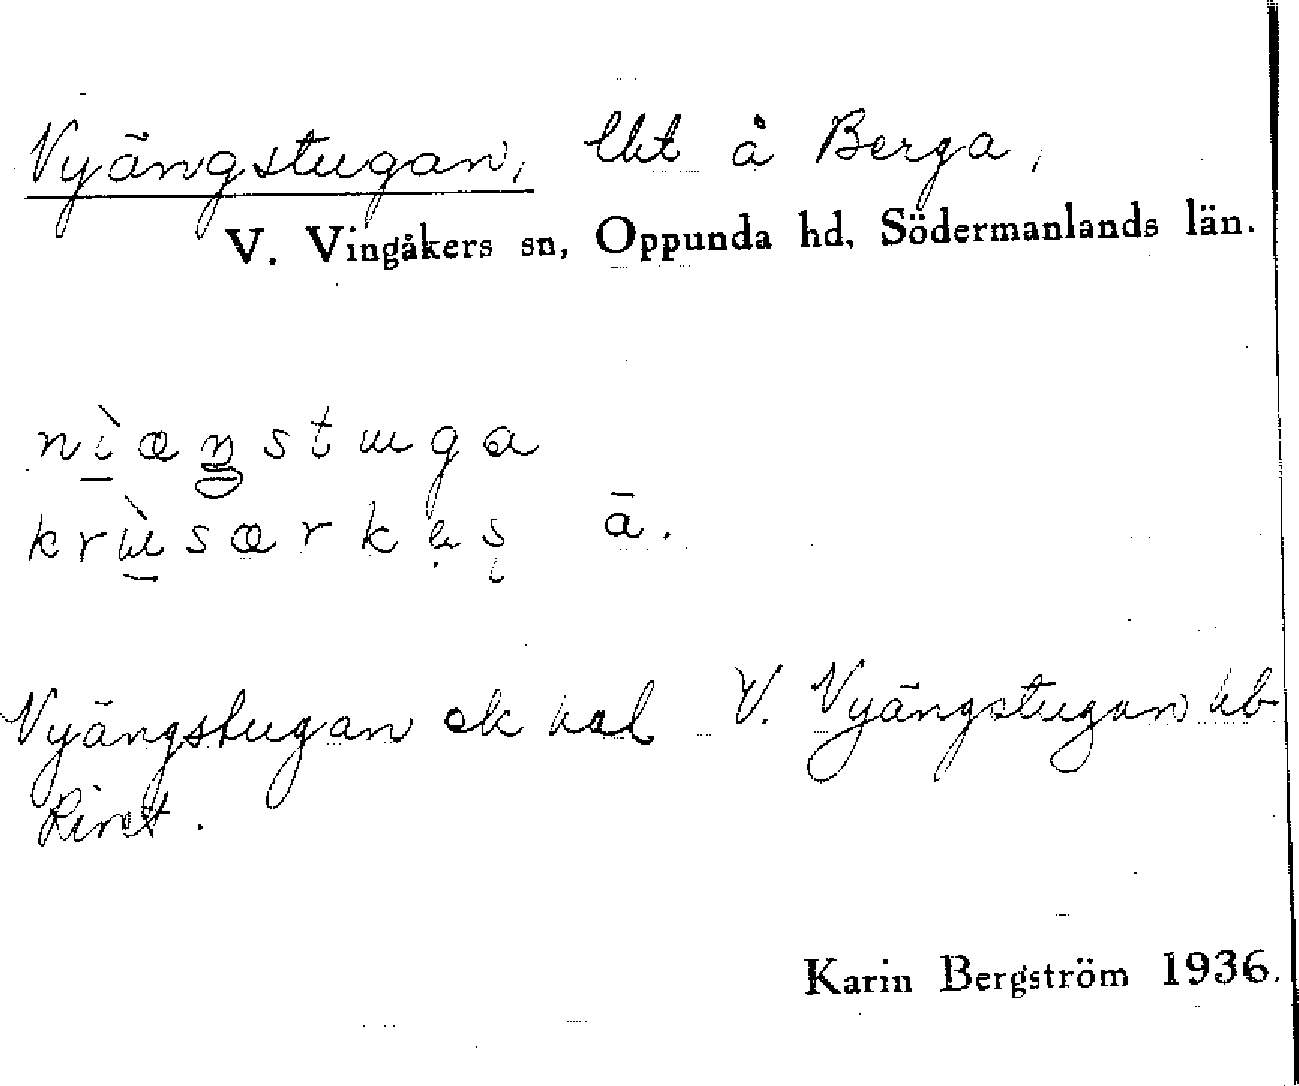 Vyängstugan, lht å Berga,
V. Vingåkers sn, Oppunda hd, Södermanlands län.
nìæŋstuga
krùsærkas ā.
Vyängstugan ek V. Vyängstugan hb
Karin Bergström 1936.